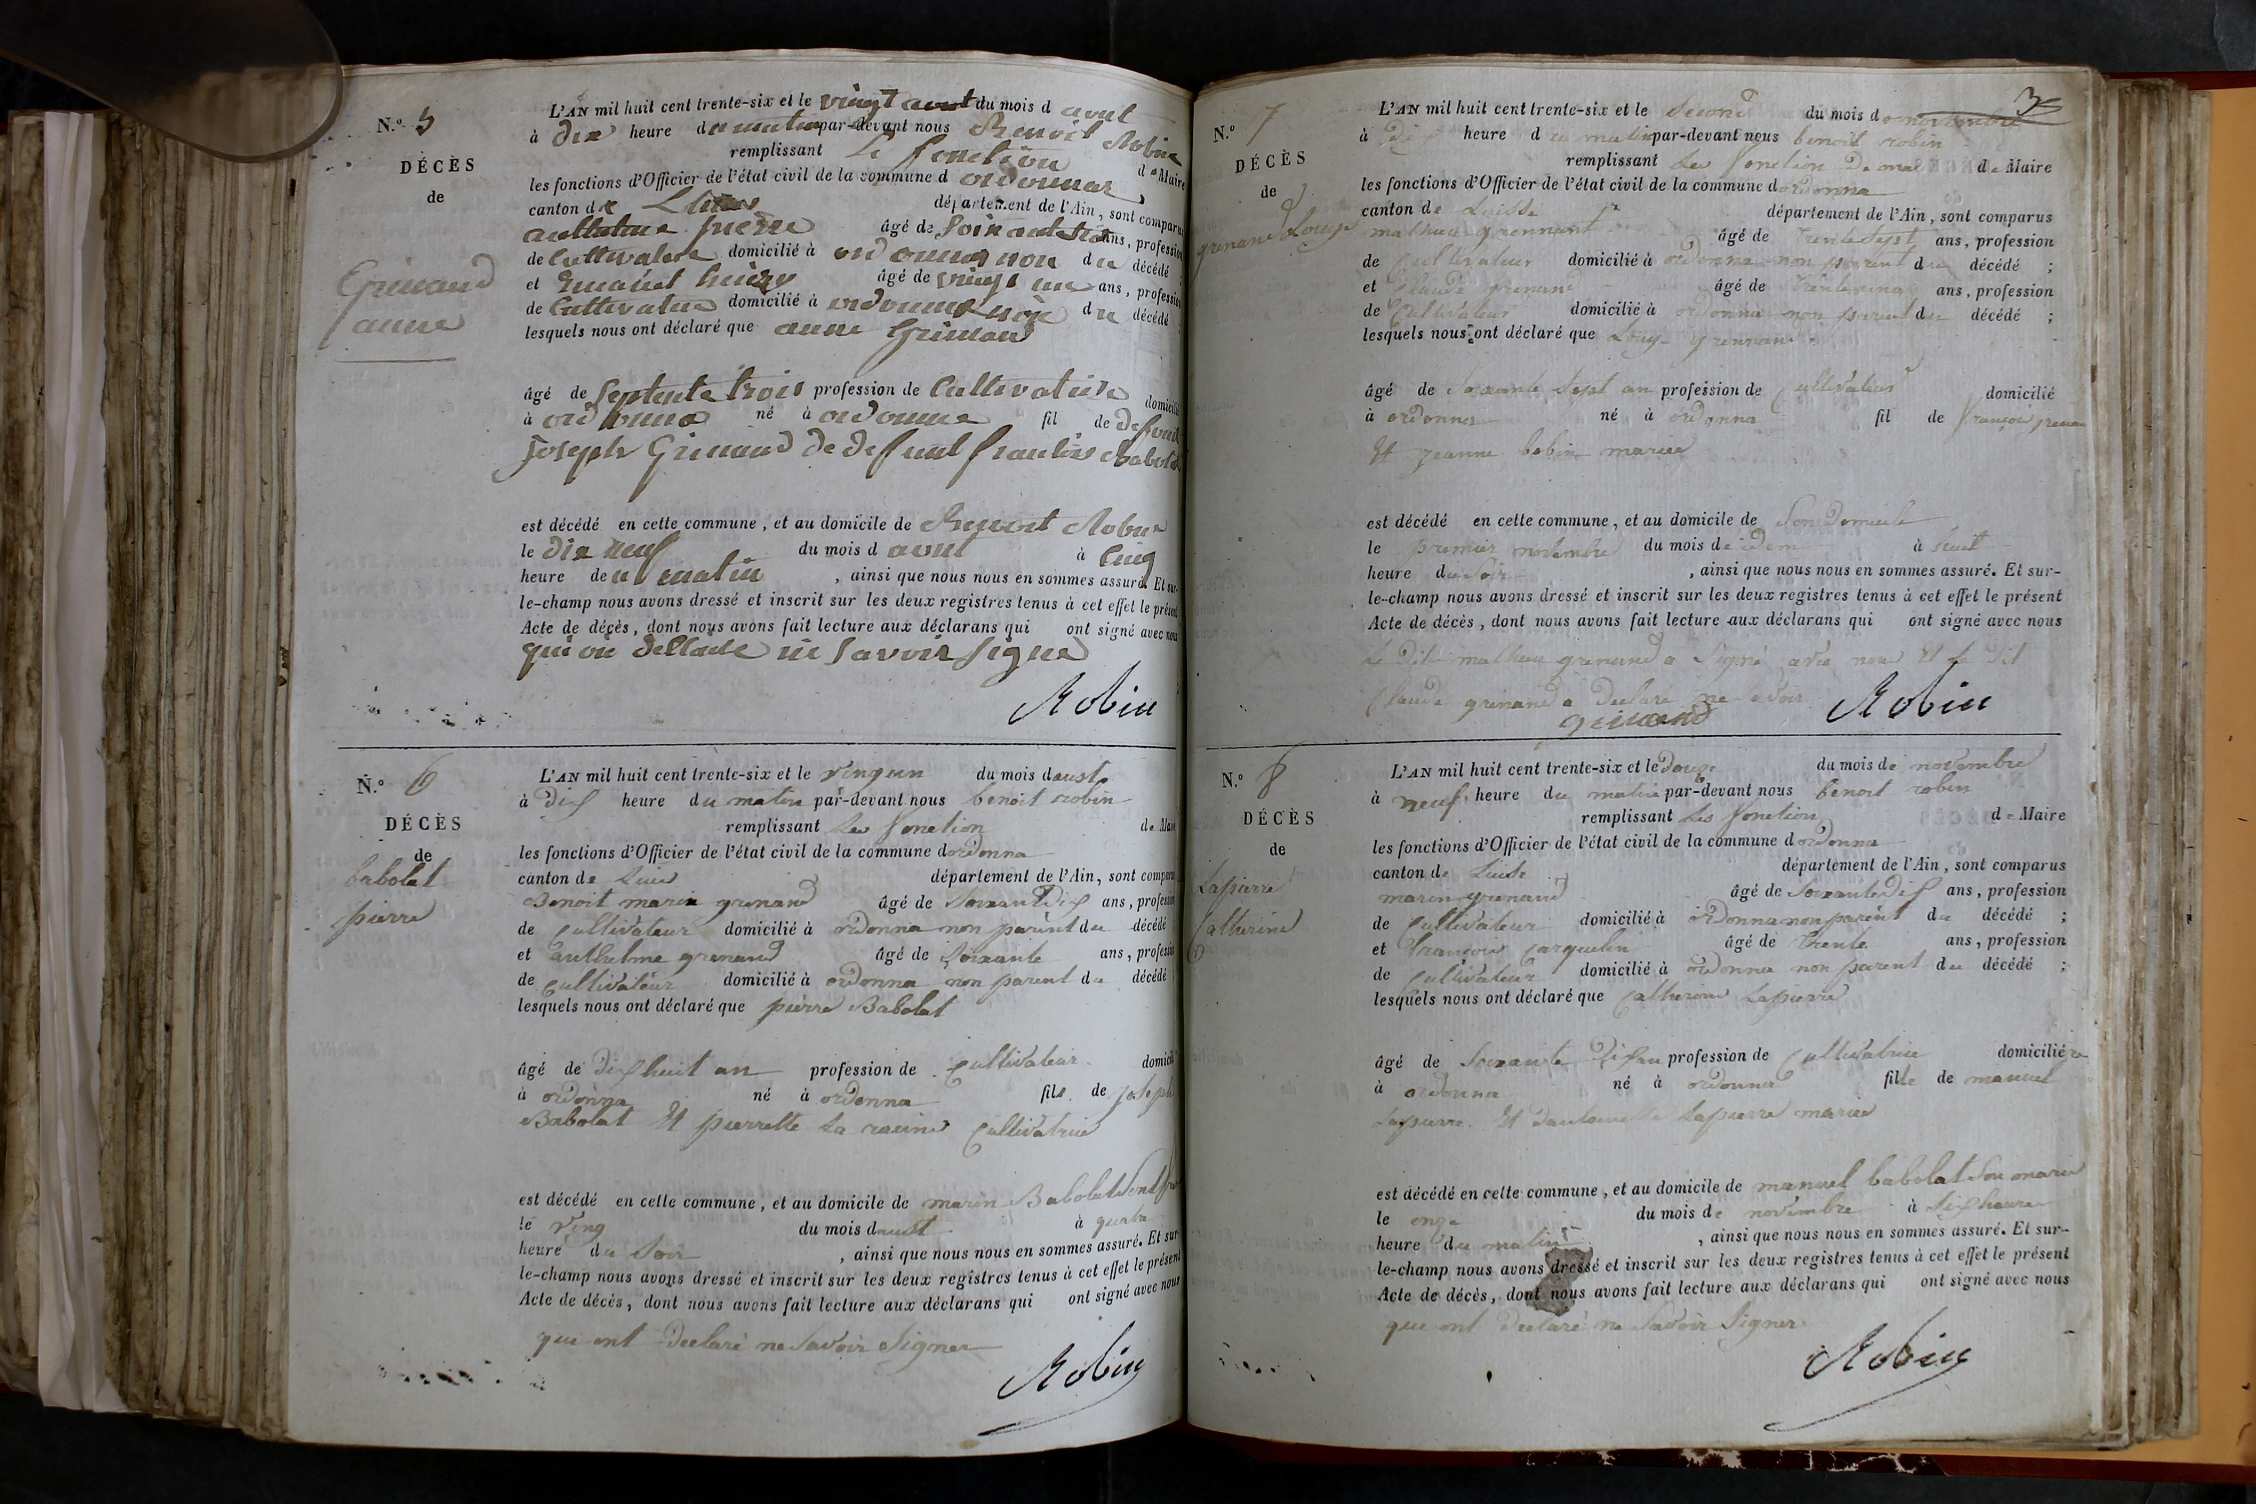 N.o 5
DÉCÈS
de
Grinand
anne
L'AN mil huit cent trente-six et le vingt avut du mois d avut
à dix heure du matin par-devant nous Benoit Robin
remplissant le fonction de Maire
les fonctions d'Officier de l'état civil de la commune d ordonnas
canton de département de l'Ain, sont comparus
anthelme âgé de Soixante ans, profession
de Cultivateur domicilié à ordonna non du décédé ;
et âgé de vingt un ans, profession
de Cultivateur domicilié à ordonna non du décédé ;
lesquels nous ont déclaré que anne Grinand
âgé de Septente trois profession de Cultivatrise domicilié
à ordonna né à ordonna fil de defunt
Joseph Grinand de defunt Babolat
est décédé en cette commune, et au domicile de Benoit Robin
le dix neuf du mois d avut à Cinq
heure deu matin , ainsi que nous nous en sommes assuré. Et sur-
le-champ nous avons dressé et inscrit sur les deux registres tenus à cet effet le présent
Acte de décès, dont nous avons fait lecture aux déclarans qui ont signé avec nous
qui on dellaré ne savoir signe
Robin
N.o 6
DÉCÈS
de
babolat
pierre
L'AN mil huit cent trente-six et le vingun du mois daust
à dix heure du matin par-devant nous benoit robin
remplissant les fonction de Maire
les fonctions d'Officier de l'état civil de la commune dordonna
canton de département de l'Ain, sont comparus
Benoit marin grenand âgé de Soixantdix ans, profession
de Cultivateur domicilié à ordonna non parent du décédé
et anthelme grenand âgé de Soixante ans, profession
de Cultivateur domicilié à ordonna non parent du décédé
lesquels nous ont déclaré que pierre Babolat
âgé de dixhuit an profession de Cultivateur domicilié
à ordonna né à ordonna fils de joseph
Babolat Et pierrette La racine Cultivatrice
est décédé en cette commune, et au domicile de marin Babolat
le ving du mois daust à quatre
heure du Soir , ainsi que nous nous en sommes assuré. Et sur-
le-champ nous avons dressé et inscrit sur les deux registres tenus à cet effet le présent
Acte de décès, dont nous avons fait lecture aux déclarans qui ont signé avec nous
qui ont declaré ne Savoir Signer
Robin
N.o 7
DÉCÈS
de
grenand Louys
L'AN mil huit cent trente-six et le Second du mois de novembre
à dix heure du matin par-devant nous benoit robin
remplissant les fonction de Maire
les fonctions d'Officier de l'état civil de la commune dordonna
canton de Luisse département de l'Ain, sont comparus
mathieu grennant âgé de trente Sept ans, profession
de Cultivateur domicilié à ordonna non parent du décédé ;
et Claude grenand âgé de ans, profession
de Cultivateur domicilié à ordonna non parent du décédé ;
lesquels nous ont déclaré que Louys grennand
âgé de Soixante Sept an profession de Cultivateur domicilié
à ordonna né à ordonna fil de françois grenan
Et jeanne bobin mariee
est décédé en cette commune, et au domicile de Son Domicile
le premier novembre du mois de idem à
heure du Soir , ainsi que nous nous en sommes assuré. Et sur-
le-champ nous avons dressé et inscrit sur les deux registres tenus à cet effet le présent
Acte de décès, dont nous avons fait lecture aux déclarans qui ont signé avec nous
Le dit mathieu grenand a Signé avec nous Et le dit
Claude grenand a Declare ne savoir
grinand Robin
N.o 8
DÉCÈS
de
Lapierre
Catherine
L'AN mil huit cent trente-six et le douze du mois de novembre
à neuf heure du matin par-devant nous benoit robin
remplissant Les fonction de Maire
les fonctions d'Officier de l'état civil de la commune dordonna
canton de Luisse département de l'Ain, sont comparus
marin grenand âgé de Soixantedix ans, profession
de Cultivateur domicilié à ordonna non parent du décédé ;
et françois Carquelin âgé de trente ans, profession
de Cultivateur domicilié à ordonna non parent du décédé ;
lesquels nous ont déclaré que Catherine Lapierre
âgé de Soixante dix an profession de Cultivatrice domicilié
à ordonna né à ordonna fille de manuel
Lapierre Et dantoinette Lapierre mariee
est décédé en cette commune, et au domicile de manuel babolat Son marie
le onze du mois de novembre à Six heure
heure du matin , ainsi que nous nous en sommes assuré. Et sur-
le-champ nous avons dressé et inscrit sur les deux registres tenus à cet effet le présent
Acte de décès, dont nous avons fait lecture aux déclarans qui ont signé avec nous
qui ont declaré ne Savoir Signer
Robin